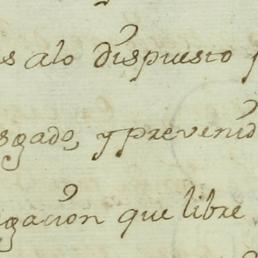 s alo dispuesto
sgado, y preveni
gacion que libre